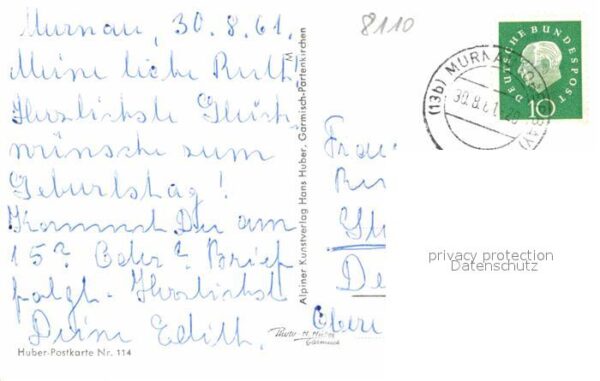 Murnau, 30.8.61.
Meine liebe Ruth!
Herzlichste Glück-
wünsche zum
Geburtstag!
Kommst Du am
15? Oder? Brief
folgt. Herzlichst
Deine Edith.
Huber-Postkarte Nr. 114
Alpiner Kunstverlag Hans Huber, Garmisch-Partenkirchen
M
Photo-H. Huber
Garmisch
8110
(13b) MURNAU
30.8.61
DEUTSCHE BUNDESPOST
10
Frau
Ru
De
Ober
privacy protection
Datenschutz